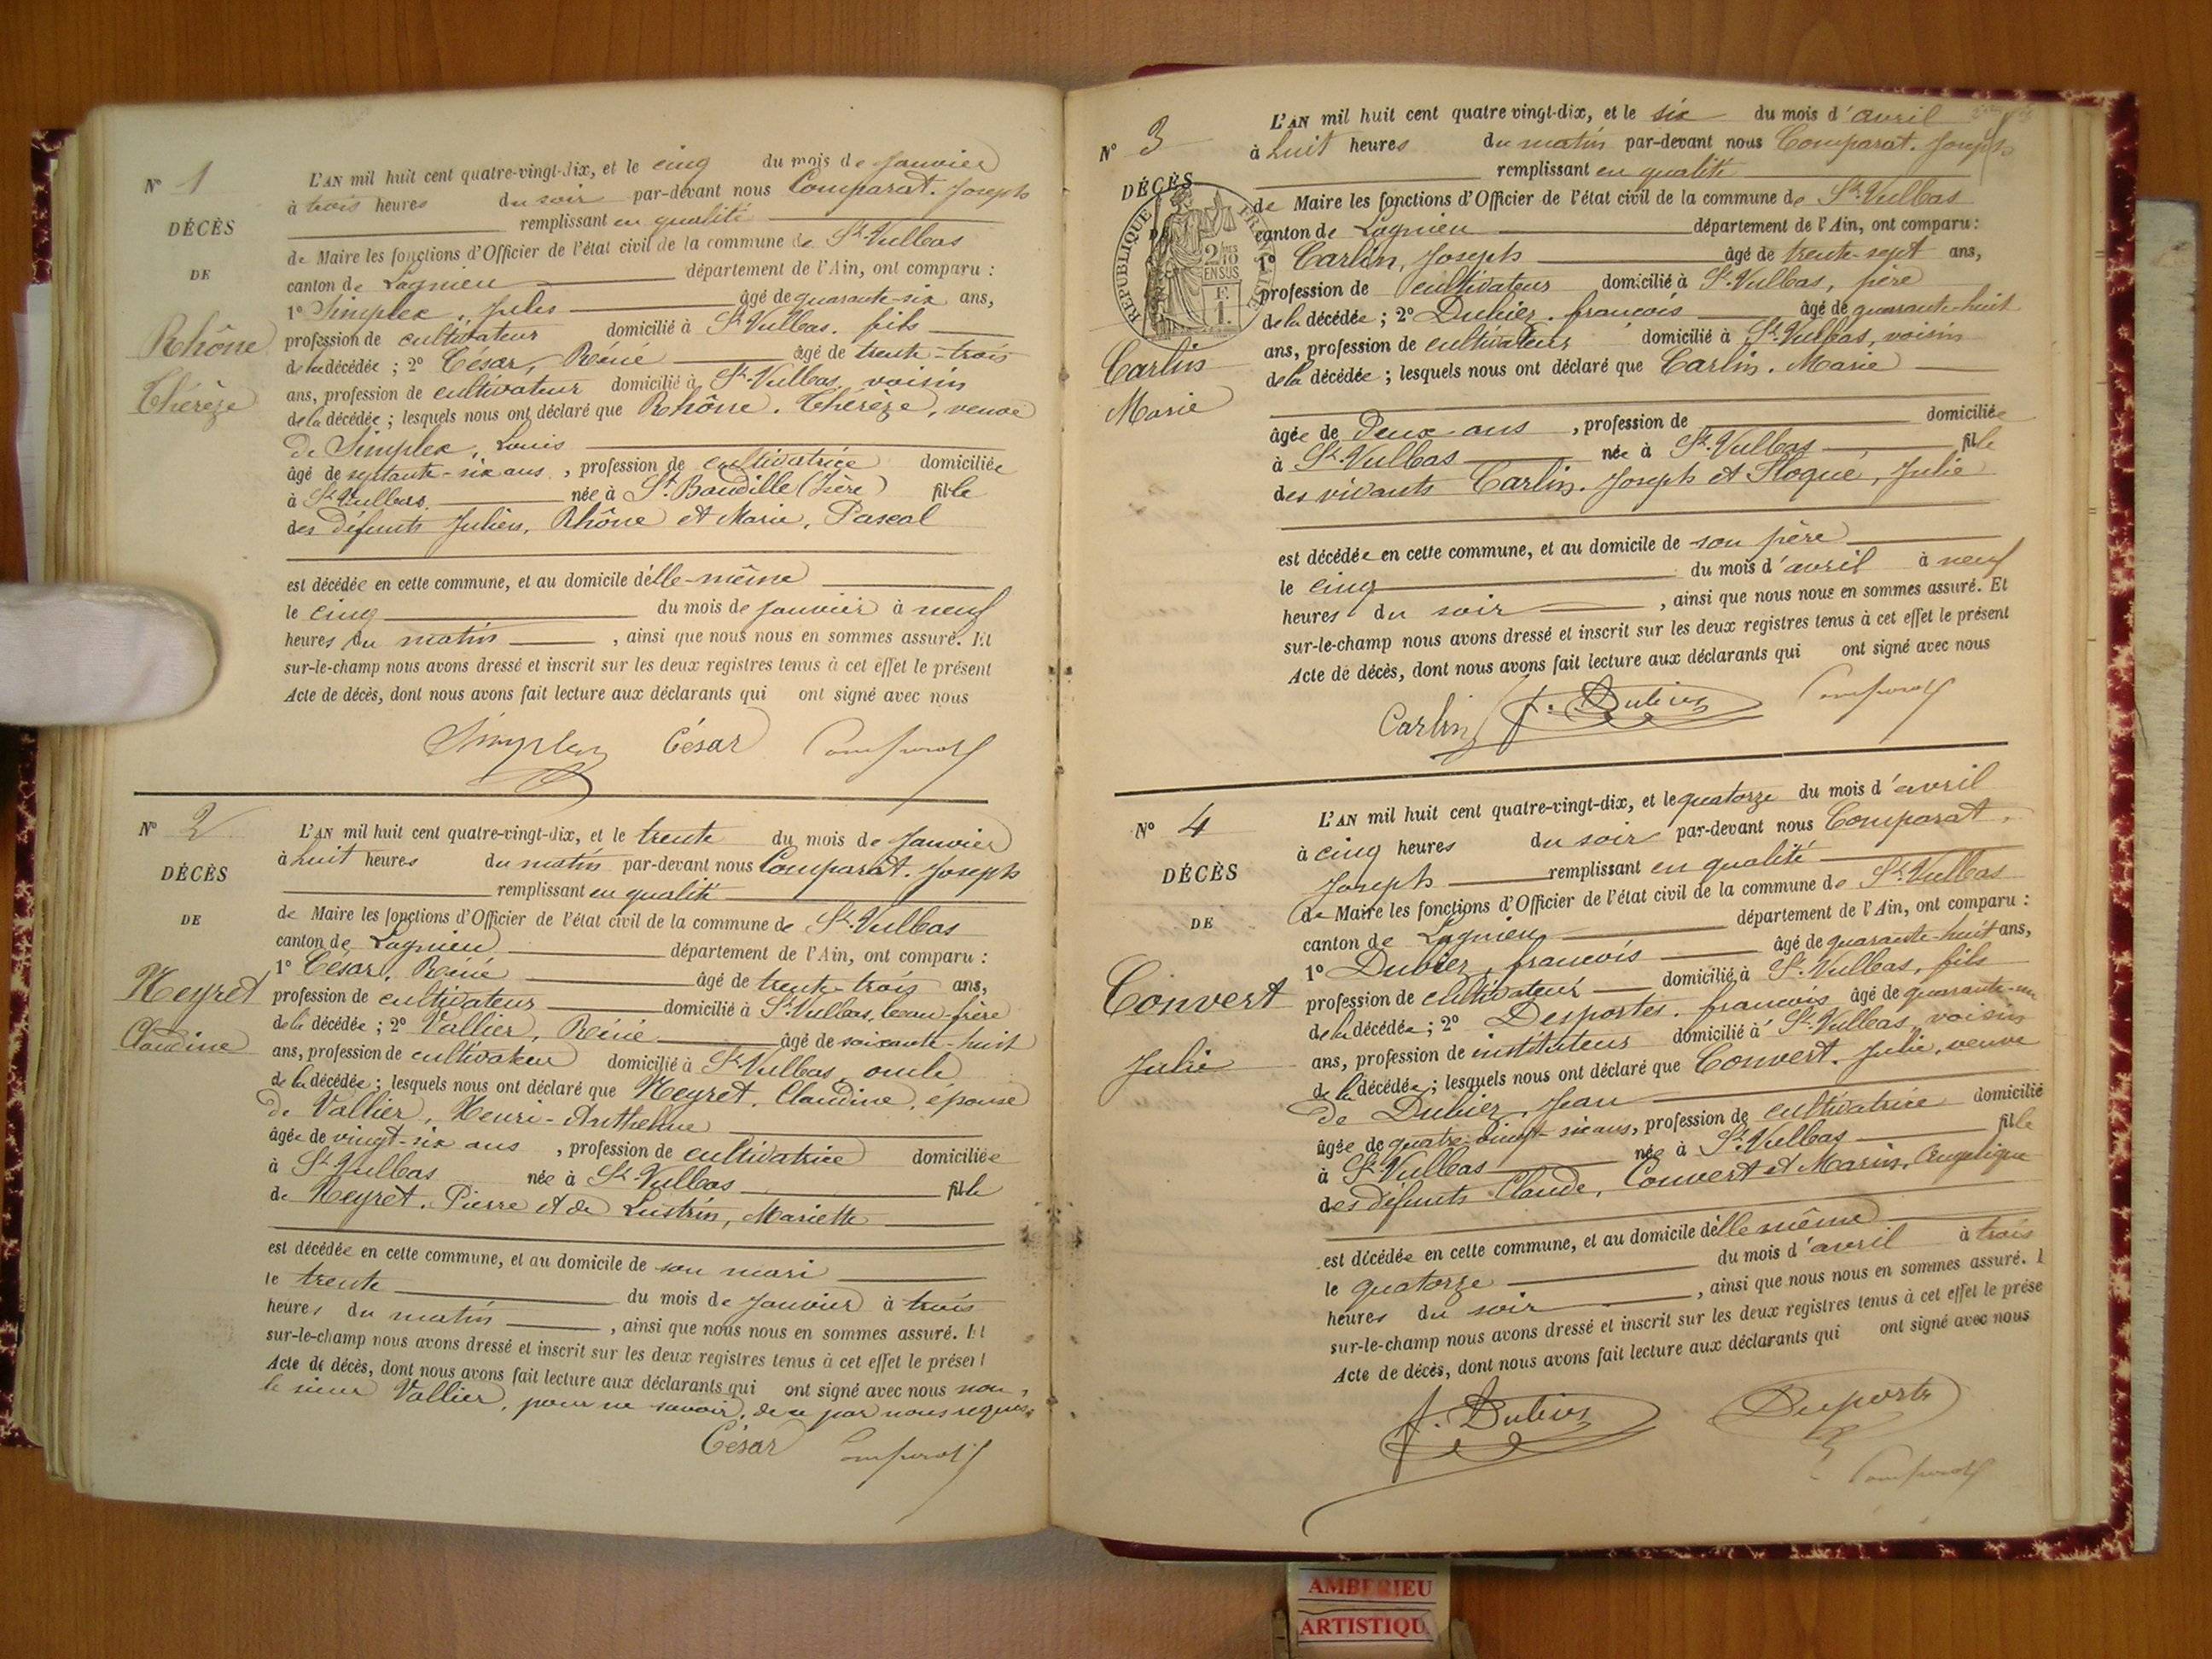 N° 1
DÉCÈS
DE
Rhône
Thérèze
L'AN mil huit cent quatre-vingt-dix, et le cinq du mois de Janvier
à trois heures du soir par-devant nous Comparat. Joseph
remplissant en qualité
de Maire les fonctions d'Officier de l'état civil de la commune de St. Vulbas
canton de Lagnieu département de l'Ain, ont comparu :
1° Simplex, Jules âgé de quarante-six ans,
profession de cultivateur domicilié à St. Vulbas. fils
de la décédée ; 2° César, Réné âgé de trente-trois
ans, profession de cultivateur domicilié à St. Vulbas, voisin
de la décédée ; lesquels nous ont déclaré que Rhône. Thérèze, veuve
de Simplex, Louis
âgé de septante-six ans, profession de cultivatrice domiciliée
à St. Vulbas née à St. Baudille (Isère) fille
des défunts Julien, Rhône et Marie, Pascal
est décédée en cette commune, et au domicile d'elle-même
le cinq du mois de Janvier à neuf
heures du matin, ainsi que nous nous en sommes assuré. Et
sur-le-champ nous avons dressé et inscrit sur les deux registres tenus à cet effet le présent
Acte de décès, dont nous avons fait lecture aux déclarants qui ont signé avec nous
Simplex César Comparat J
N° 2
DÉCÈS
DE
Neyret
Claudine
L'AN mil huit cent quatre-vingt-dix, et le trente du mois de Janvier
à huit heures du matin par-devant nous Comparat. Joseph
remplissant en qualité
de Maire les fonctions d'Officier de l'état civil de la commune de St. Vulbas
canton de Lagnieu département de l'Ain, ont comparu :
1° César, Réné âgé de trente-trois ans,
profession de cultivateur domicilié à St. Vulbas, beau-frère
de la décédée ; 2° Vallier, Réné âgé de soixante-huit
ans, profession de cultivateur domicilié à St. Vulbas, oncle
de la décédée ; lesquels nous ont déclaré que Neyret, Claudine, épouse
de Vallier, Henri-Anthelme
âgée de vingt-six ans, profession de cultivatrice domiciliée
à St. Vulbas née à St. Vulbas fille
de Neyret. Pierre et de Lustrin, Mariette
est décédée en cette commune, et au domicile de son mari
le trente du mois de Janvier à trois
heures du matin, ainsi que nous nous en sommes assuré. Et
sur-le-champ nous avons dressé et inscrit sur les deux registres tenus à cet effet le présent
Acte de décès, dont nous avons fait lecture aux déclarants qui ont signé avec nous non,
le sieur Vallier, pour ne savoir, de ce par nous requis.
César Comparat J
N° 3
DÉCÈS
DE
RÉPUBLIQUE FRANÇAISE
2/10 EN SUS
F. 1.
Carlin
Marie
L'AN mil huit cent quatre vingt-dix, et le six du mois d'avril
à huit heures du matin par-devant nous Comparat. Joseph
remplissant en qualité
de Maire les fonctions d'Officier de l'état civil de la commune de St. Vulbas
canton de Lagnieu département de l'Ain, ont comparu :
1° Carlin, Joseph âgé de trente-sept ans,
profession de cultivateur domicilié à St. Vulbas, père
de la décédée ; 2° Dubiez. françois âgé de quarante-huit
ans, profession de cultivateur domicilié à St. Vulbas, voisin
de la décédée ; lesquels nous ont déclaré que Carlin. Marie
âgée de Deux-ans, profession de domiciliée
à St. Vulbas née à St. Vulbas fille
des vivants Carlin. Joseph et Floque, Julie
est décédée en cette commune, et au domicile de son père
le cinq du mois d'avril à neuf
heures du soir, ainsi que nous nous en sommes assuré. Et
sur-le-champ nous avons dressé et inscrit sur les deux registres tenus à cet effet le présent
Acte de décès, dont nous avons fait lecture aux déclarants qui ont signé avec nous
Carlin f. Dubiez Comparat J
N° 4
DÉCÈS
DE
Convert
Julie
L'AN mil huit cent quatre-vingt-dix, et le quatorze du mois d'avril
à cinq heures du soir par-devant nous Comparat,
Joseph remplissant en qualité
de Maire les fonctions d'Officier de l'état civil de la commune de St. Vulbas
canton de Lagnieu département de l'Ain, ont comparu :
1° Dubiez, françois âgé de quarante-huit ans,
profession de cultivateur domicilié à St. Vulbas, fils
de la décédée ; 2° Desportes. françois âgé de quarante-un
ans, profession de instituteur domicilié à St. Vulbas, voisin
de la décédée ; lesquels nous ont déclaré que Convert. Julie, veuve
de Dubiez, Jean
âgée de quatre-vingt-six ans, profession de cultivatrice domicilié
à St. Vulbas née à St. Vulbas fille
des défunts Claude, Convert et Marin, Angélique
est décédée en cette commune, et au domicile d'elle même
le quatorze du mois d'avril à trois
heures du soir, ainsi que nous nous en sommes assuré.
sur-le-champ nous avons dressé et inscrit sur les deux registres tenus à cet effet le prése
Acte de décès, dont nous avons fait lecture aux déclarants qui ont signé avec nous
f. Dubiez Desportes
Comparat J
AMBERIEU
ARTISTIQU